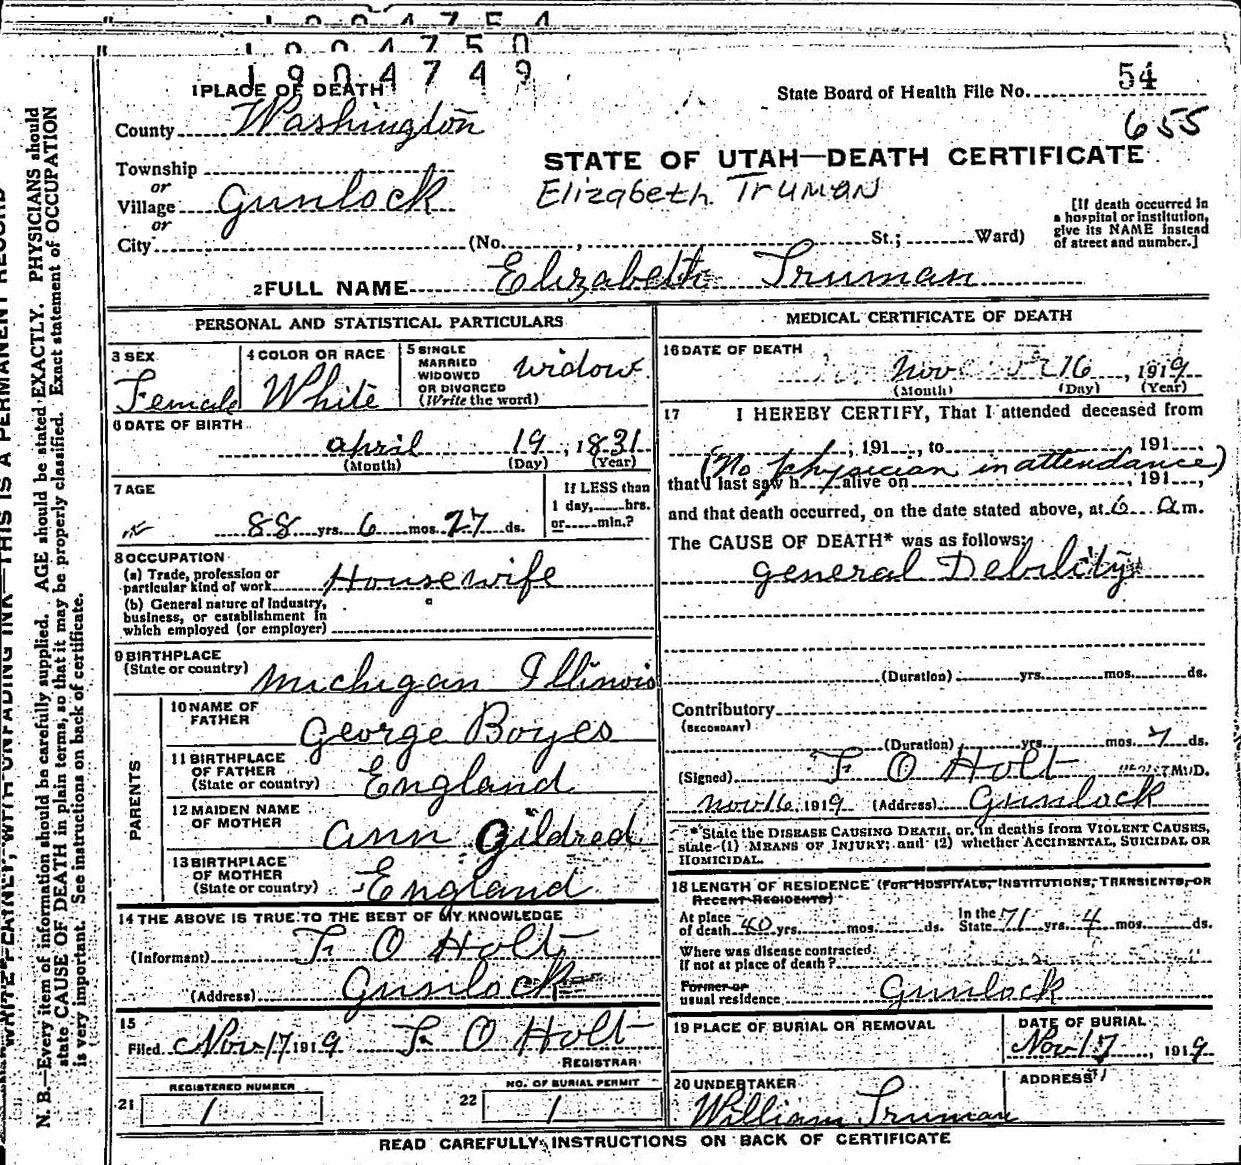 1904754
1904750
1904749
1 PLACE OF DEATH
State Board of Health File No. 54
County Washington
655
STATE OF UTAH—DEATH CERTIFICATE
Township
or
Village Gunlock
Elizabeth Truman
or
City (No. , St.; Ward)
[If death occurred in
a hospital or institution,
give its NAME instead
of street and number.]
2 FULL NAME Elizabeth Truman
PERSONAL AND STATISTICAL PARTICULARS
3 SEX
Female
4 COLOR OR RACE
White
5 SINGLE
MARRIED
WIDOWED
OR DIVORCED
(Write the word)
widow
6 DATE OF BIRTH
april 19, 1831
(Month) (Day) (Year)
7 AGE
88 yrs. 6 mos. 27 ds.
If LESS than
1 day, hrs.
or min.?
8 OCCUPATION
(a) Trade, profession or
particular kind of work Housewife
(b) General nature of industry,
business, or establishment in
which employed (or employer)
9 BIRTHPLACE
(State or country) Michigan Illinois
PARENTS
10 NAME OF
FATHER George Boyes
11 BIRTHPLACE
OF FATHER
(State or country) England
12 MAIDEN NAME
OF MOTHER ann Gildred
13 BIRTHPLACE
OF MOTHER
(State or country) England
14 THE ABOVE IS TRUE TO THE BEST OF MY KNOWLEDGE
(Informant) F. O Holt
(Address) Gunlock
15
Filed Nov 17 1919 F. O Holt
REGISTRAR
REGISTERED NUMBER
21 1
NO. OF BURIAL PERMIT
22 1
MEDICAL CERTIFICATE OF DEATH
16 DATE OF DEATH
Nov 16, 1919
(Month) (Day) (Year)
17 I HEREBY CERTIFY, That I attended deceased from
, 191 , to , 191 ,
(No physician in attendance)
that I last saw h alive on , 191 ,
and that death occurred, on the date stated above, at 6 a m.
The CAUSE OF DEATH* was as follows:
general Debility
(Duration) yrs. mos. ds.
Contributory
(SECONDARY)
(Duration) yrs. mos. 7 ds.
(Signed) F O Holt M.D.
Nov 16 1919 (Address) Gunlock
*State the DISEASE CAUSING DEATH, or, in deaths from VIOLENT CAUSES,
state (1) MEANS OF INJURY; and (2) whether ACCIDENTAL, SUICIDAL OR
HOMICIDAL.
18 LENGTH OF RESIDENCE (FOR HOSPITALS, INSTITUTIONS, TRANSIENTS, OR
RECENT RESIDENTS)
At place
of death 40 yrs. mos. ds.
In the
State 71 yrs. 4 mos. ds.
Where was disease contracted
if not at place of death?
Former or
usual residence Gunlock
19 PLACE OF BURIAL OR REMOVAL
DATE OF BURIAL
Nov 17, 1919
20 UNDERTAKER
William Truman
ADDRESS
READ CAREFULLY INSTRUCTIONS ON BACK OF CERTIFICATE
WRITE PLAINLY, WITH UNFADING INK—THIS IS A PERMANENT RECORD
N. B.—Every item of information should be carefully supplied. AGE should be stated EXACTLY. PHYSICIANS should
state CAUSE OF DEATH in plain terms, so that it may be properly classified. Exact statement of OCCUPATION
is very important. See instructions on back of certificate.